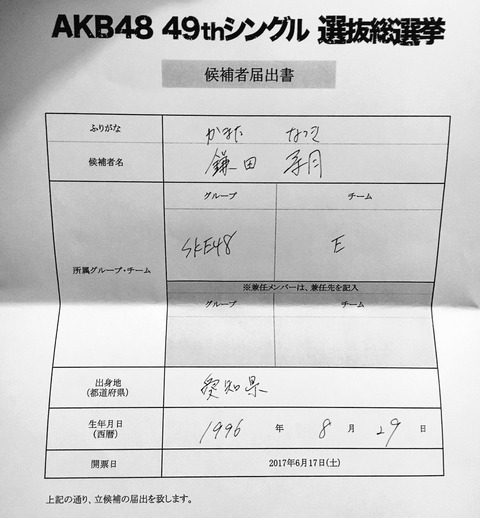 AKB48 49thシングル 選抜総選挙
候補者届出書
ふりがな
かまた なつき
候補者名
鎌田 菜月
グループ
チーム
所属グループ・チーム
SKE48
E
※兼任メンバーは、兼任先を記入
グループ
チーム
出身地
(都道府県)
愛知県
生年月日
(西暦)
1996 年 8 月 29 日
開票日
2017年6月17日(土)
上記の通り、立候補の届出を致します。